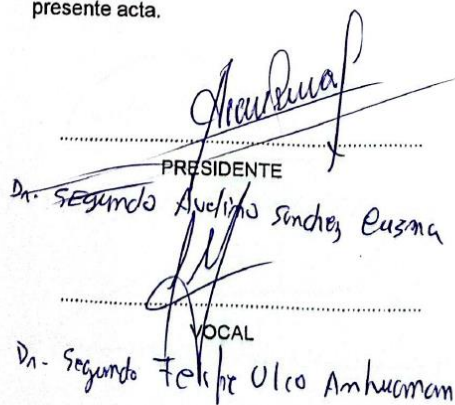 presente acta.
PRESIDENTE
Dr. Segundo Avelino Sánchez Cusma
VOCAL
Dr. Segundo Felipe Ulco Anhuaman